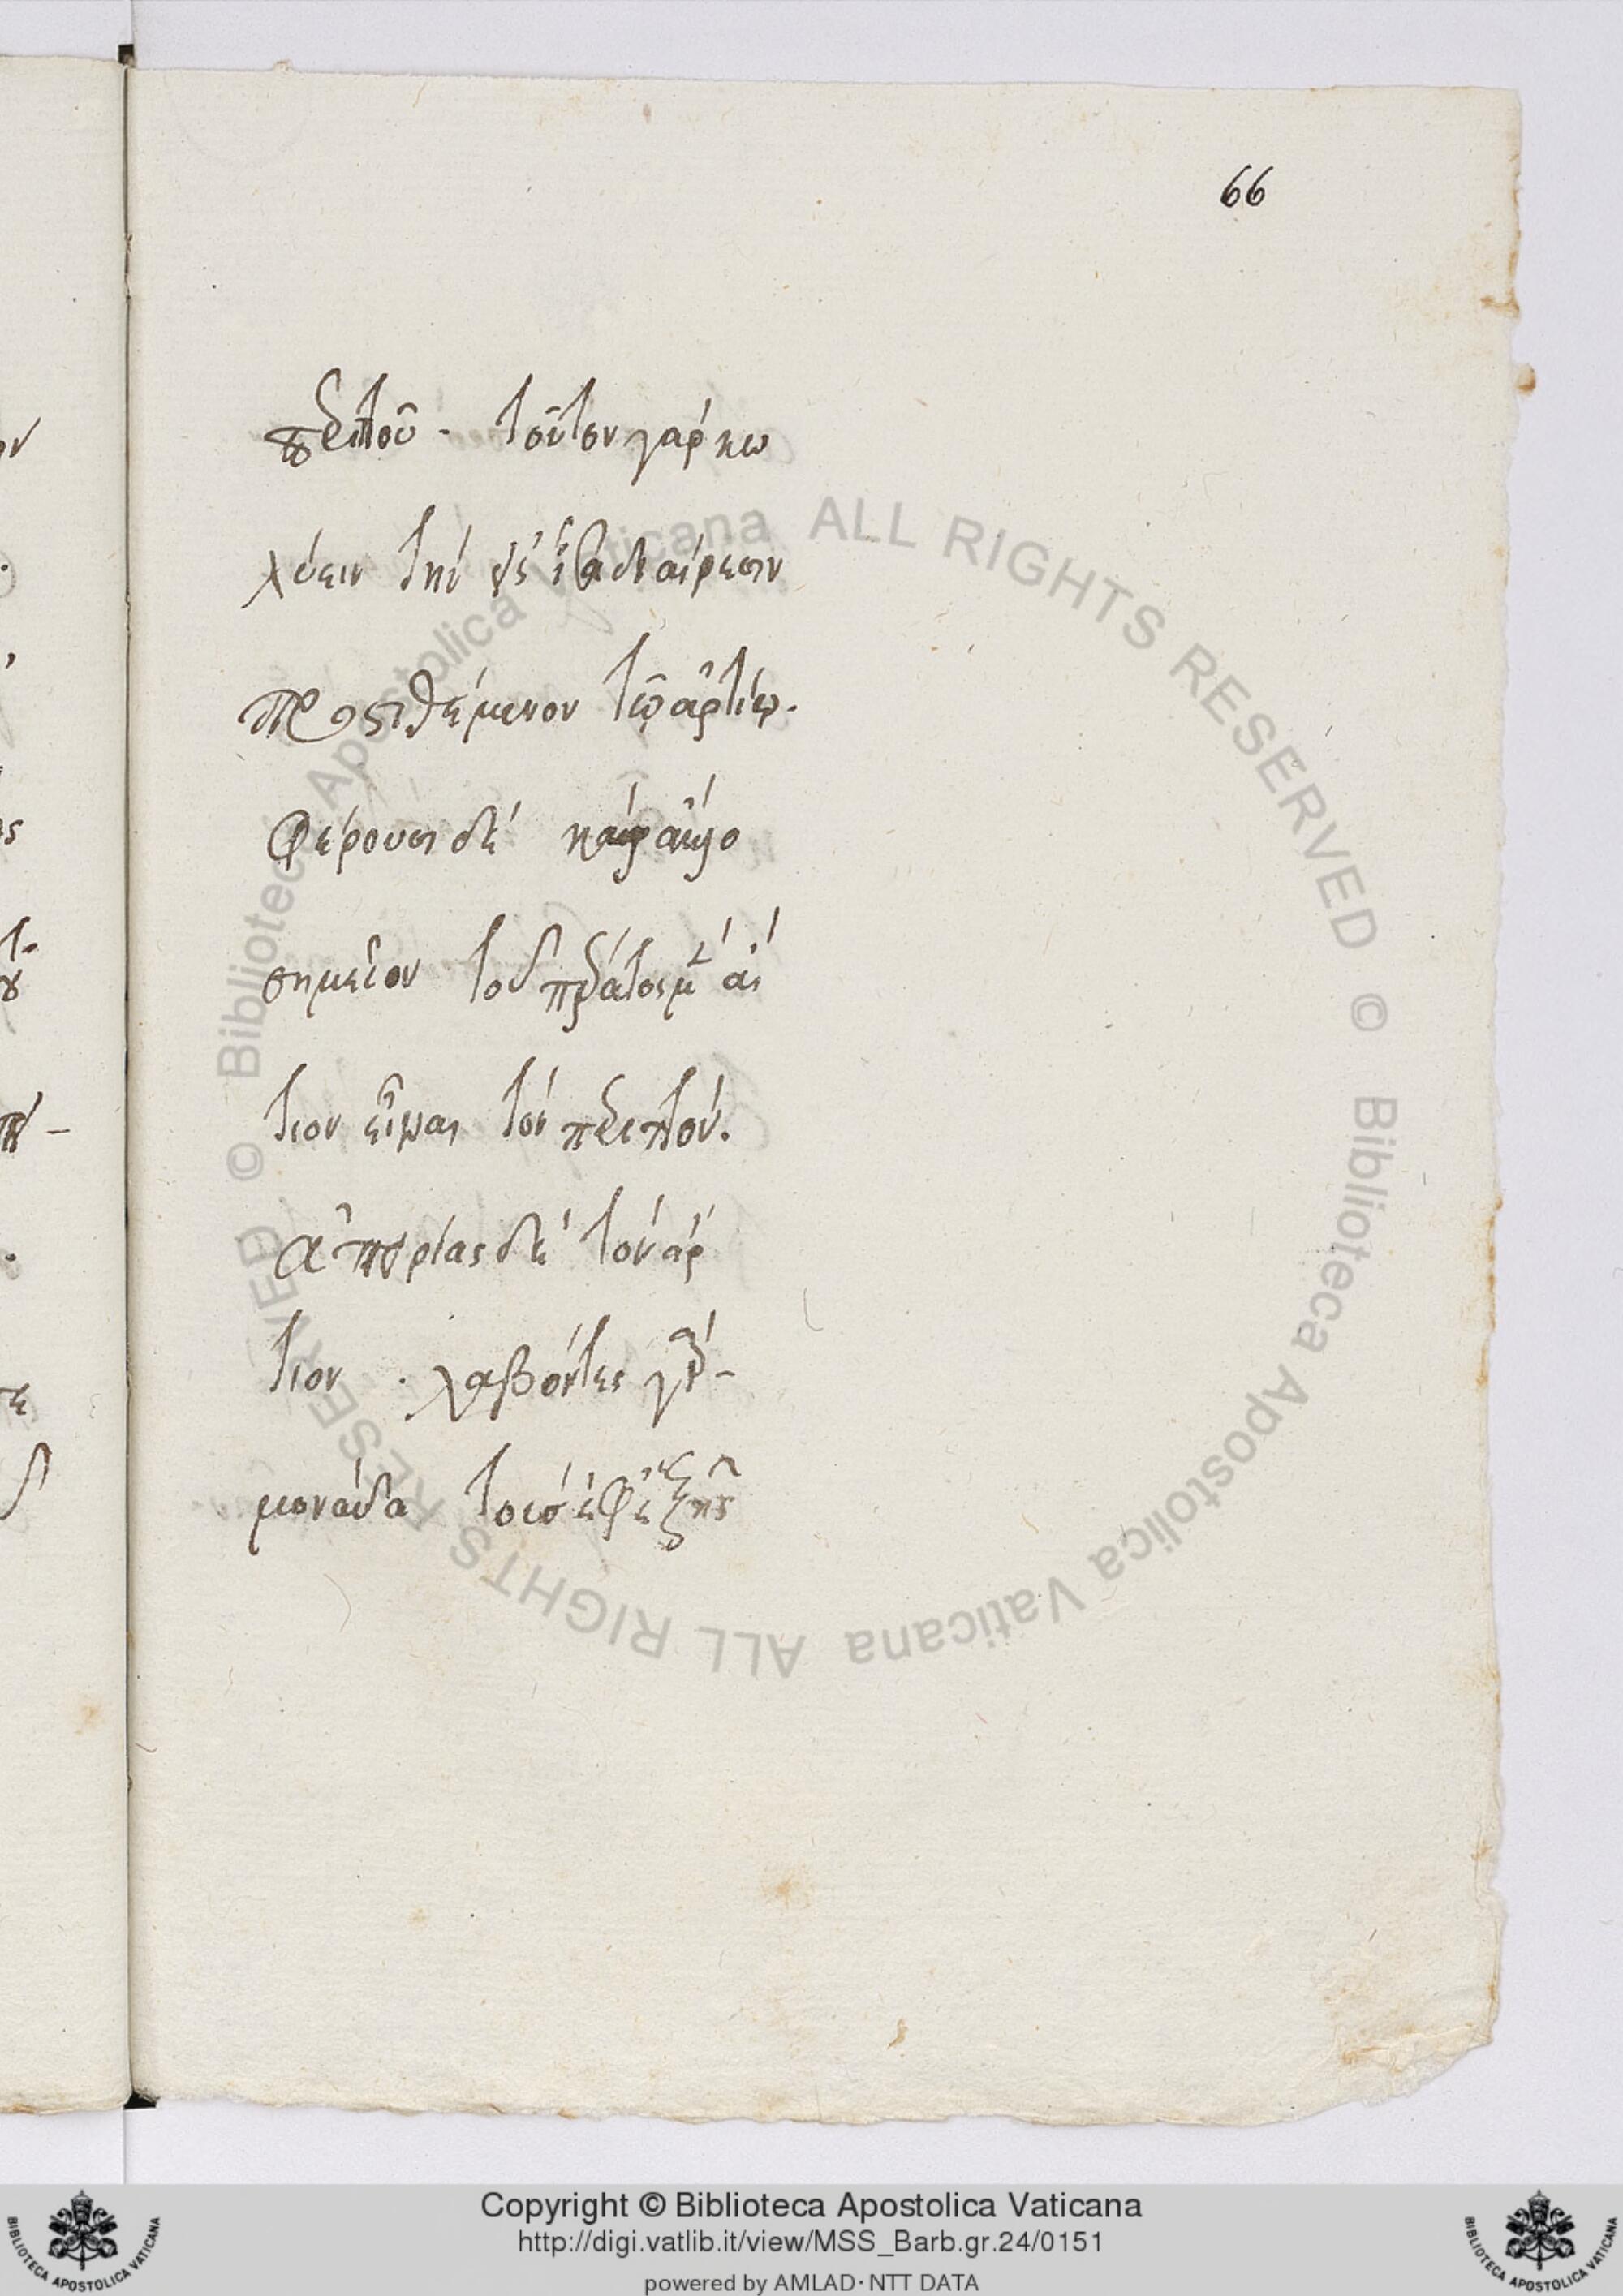 66
περιττοῦ. τοῦτον γὰρ κω
λύειν τὴν εἰς ἴσα διαίρεσιν
προστιθέμενον τῷ ἀρτίῳ.
φέρουσι δὲ καὶ ἄλλο
σημεῖον τοῦ πέρατος μὲν αἴ
τιον εἶναι τὸν περιττόν.
ἀπειρίας δὲ τὸν ἄρ
τιον. λαβόντες γὰρ
μονάδα τοῖς ἐφεξῆς
© Biblioteca Apostolica Vaticana ALL RIGHTS RESERVED © Biblioteca Apostolica Vaticana ALL RIGHTS RESERVED
Copyright © Biblioteca Apostolica Vaticana
http://digi.vatlib.it/view/MSS_Barb.gr.24/0151
powered by AMLAD·NTT DATA
BIBLIOTECA APOSTOLICA VATICANA
BIBLIOTECA APOSTOLICA VATICANA